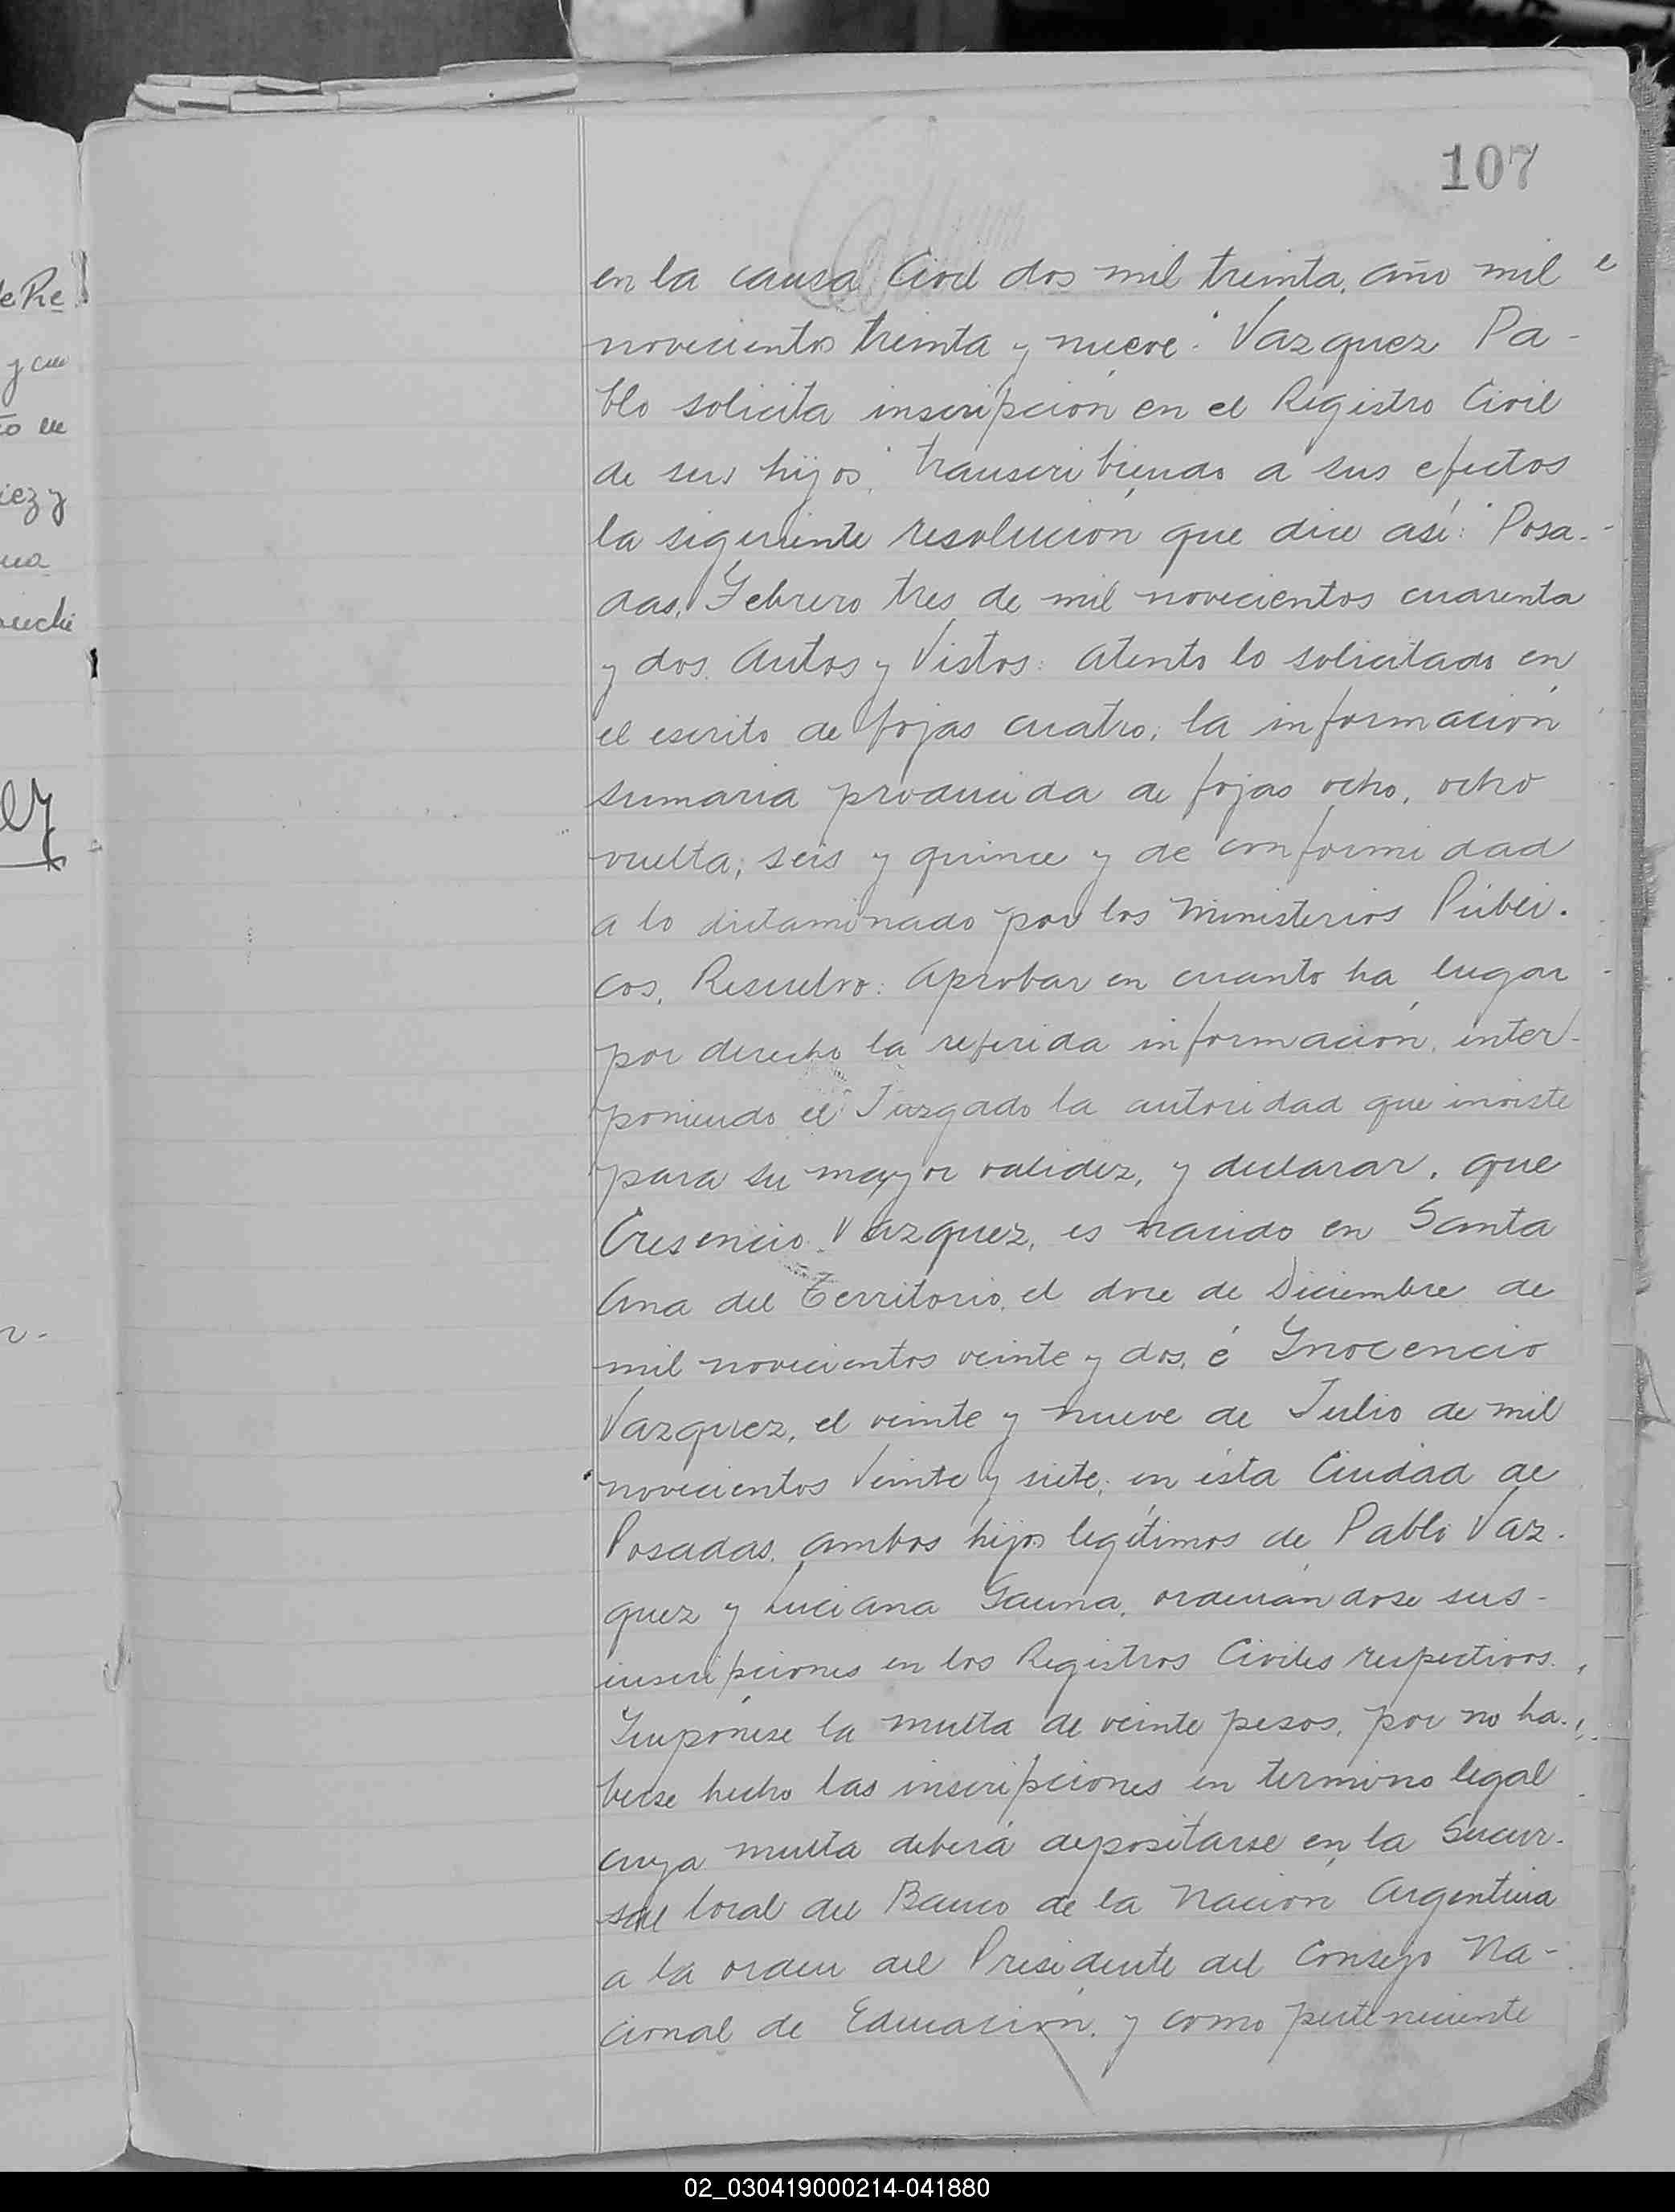 107
en la causa Civil dos mil treinta, año mil
novecientos treinta y nueve "Vazquez Pa-
blo solicita inscripción en el Registro Civil
de sus hijos," transcribiendo a sus efectos
la siguiente resolución que dice así: "Posa-
das, Febrero tres de mil novecientos cuarenta
y dos. Autos y Vistos: Atento lo solicitado en
el escrito de fojas cuatro, la información
sumaria producida de fojas ocho, ocho
vuelta, seis y quince y de conformidad
a lo dictaminado por los Ministerios Públi-
cos, Resuelvo: Aprobar en cuanto ha lugar
por derecho la referida información, inter-
poniendo el Juzgado la autoridad que inviste
para su mayor validez, y declarar, que
Cresencio Vazquez, es nacido en Santa
Ana del Territorio, el doce de Diciembre de
mil novecientos veinte y dos, é Ynocencio
Vazquez, el veinte y nueve de Julio de mil
novecientos veinte y siete, en ésta Ciudad de
Posadas, ambos hijos legítimos de Pablo Vaz-
quez y Luciana Gauna, ordenándose sus-
inscripciones en los Registros Civiles respectivos.
Ympónese la multa de veinte pesos, por no ha-
berse hecho las inscripciones en termino legal
cuya multa deberá depositarse en la Sucur-
sal local del Banco de la Nación Argentina
a la orden del Presidente del Consejo Na-
cional de Educación, y como perteneciente
02_030419000214-041880